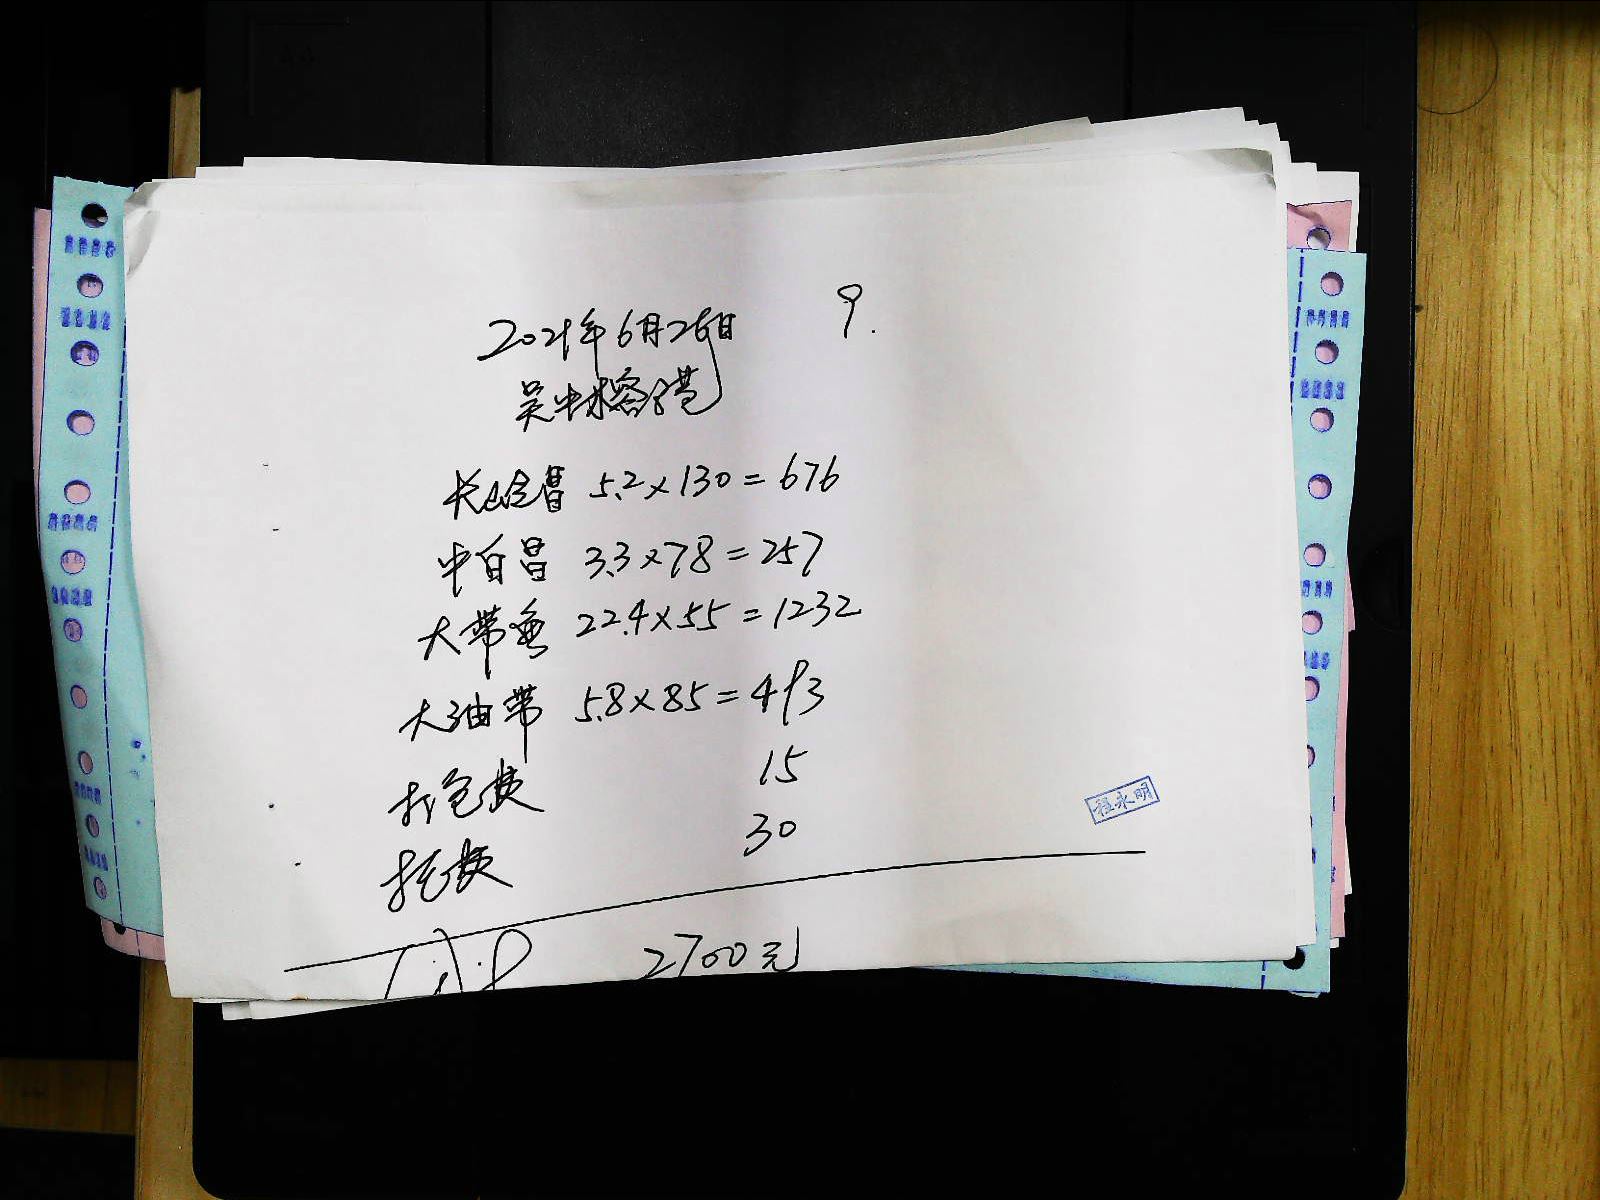 2021年6月26日 9.
吴中水
长 5.2×130=676
中白昌 3.3×78=257
大带鱼 22.4×55=1232
大油带 5.8×85=493
打包费 15
托费 30
程永明
2700元